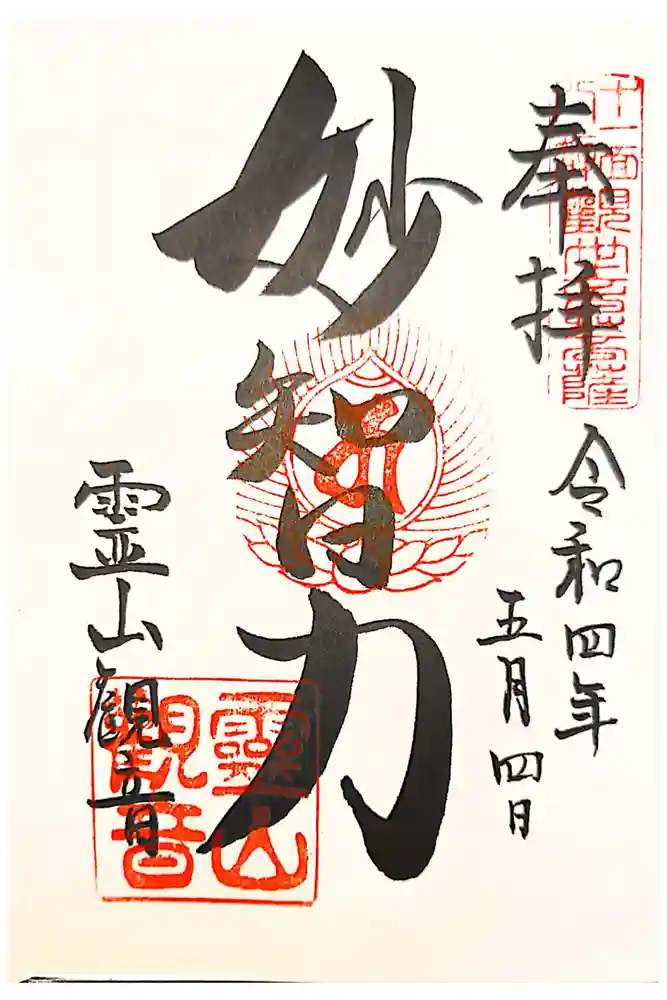 奉拝
十一面観世音霊
令和四年
五月四日
妙智力
霊山観音
靈山
觀音